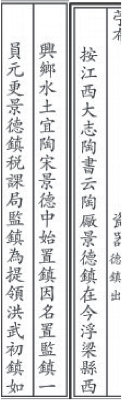 布 瓷器德鎮出
按江西大志陶書云陶厰景德鎮在今浮梁縣西
興鄉水土宜陶宋景德中始置鎮因名置監鎮一
員元更景德鎮税課局監鎮為提領洪武初鎮如